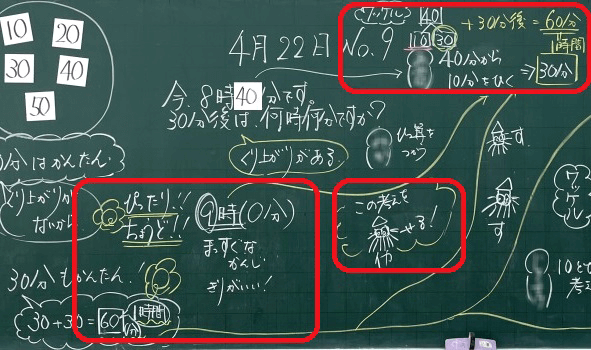 10
20
30
40
50
4月22日 No.9
今、8時40分です。
30分後は、何時何分ですか?
くり上がりがある。
ワックル
40
10 30
+30分後=60分
1時間
40分から
10分をひく ⇒ 30分
ひっ算を
つかう
す。
す
ワックル
10と
考え
分はかんたん。
くり上がりが
ないから
ぴったり!!
ちょうど!!
9時(0分)
まっすぐな
かんじ
きりがいい!
この考えを
せる!
30分もかんたん!
30+30=60分
1時間